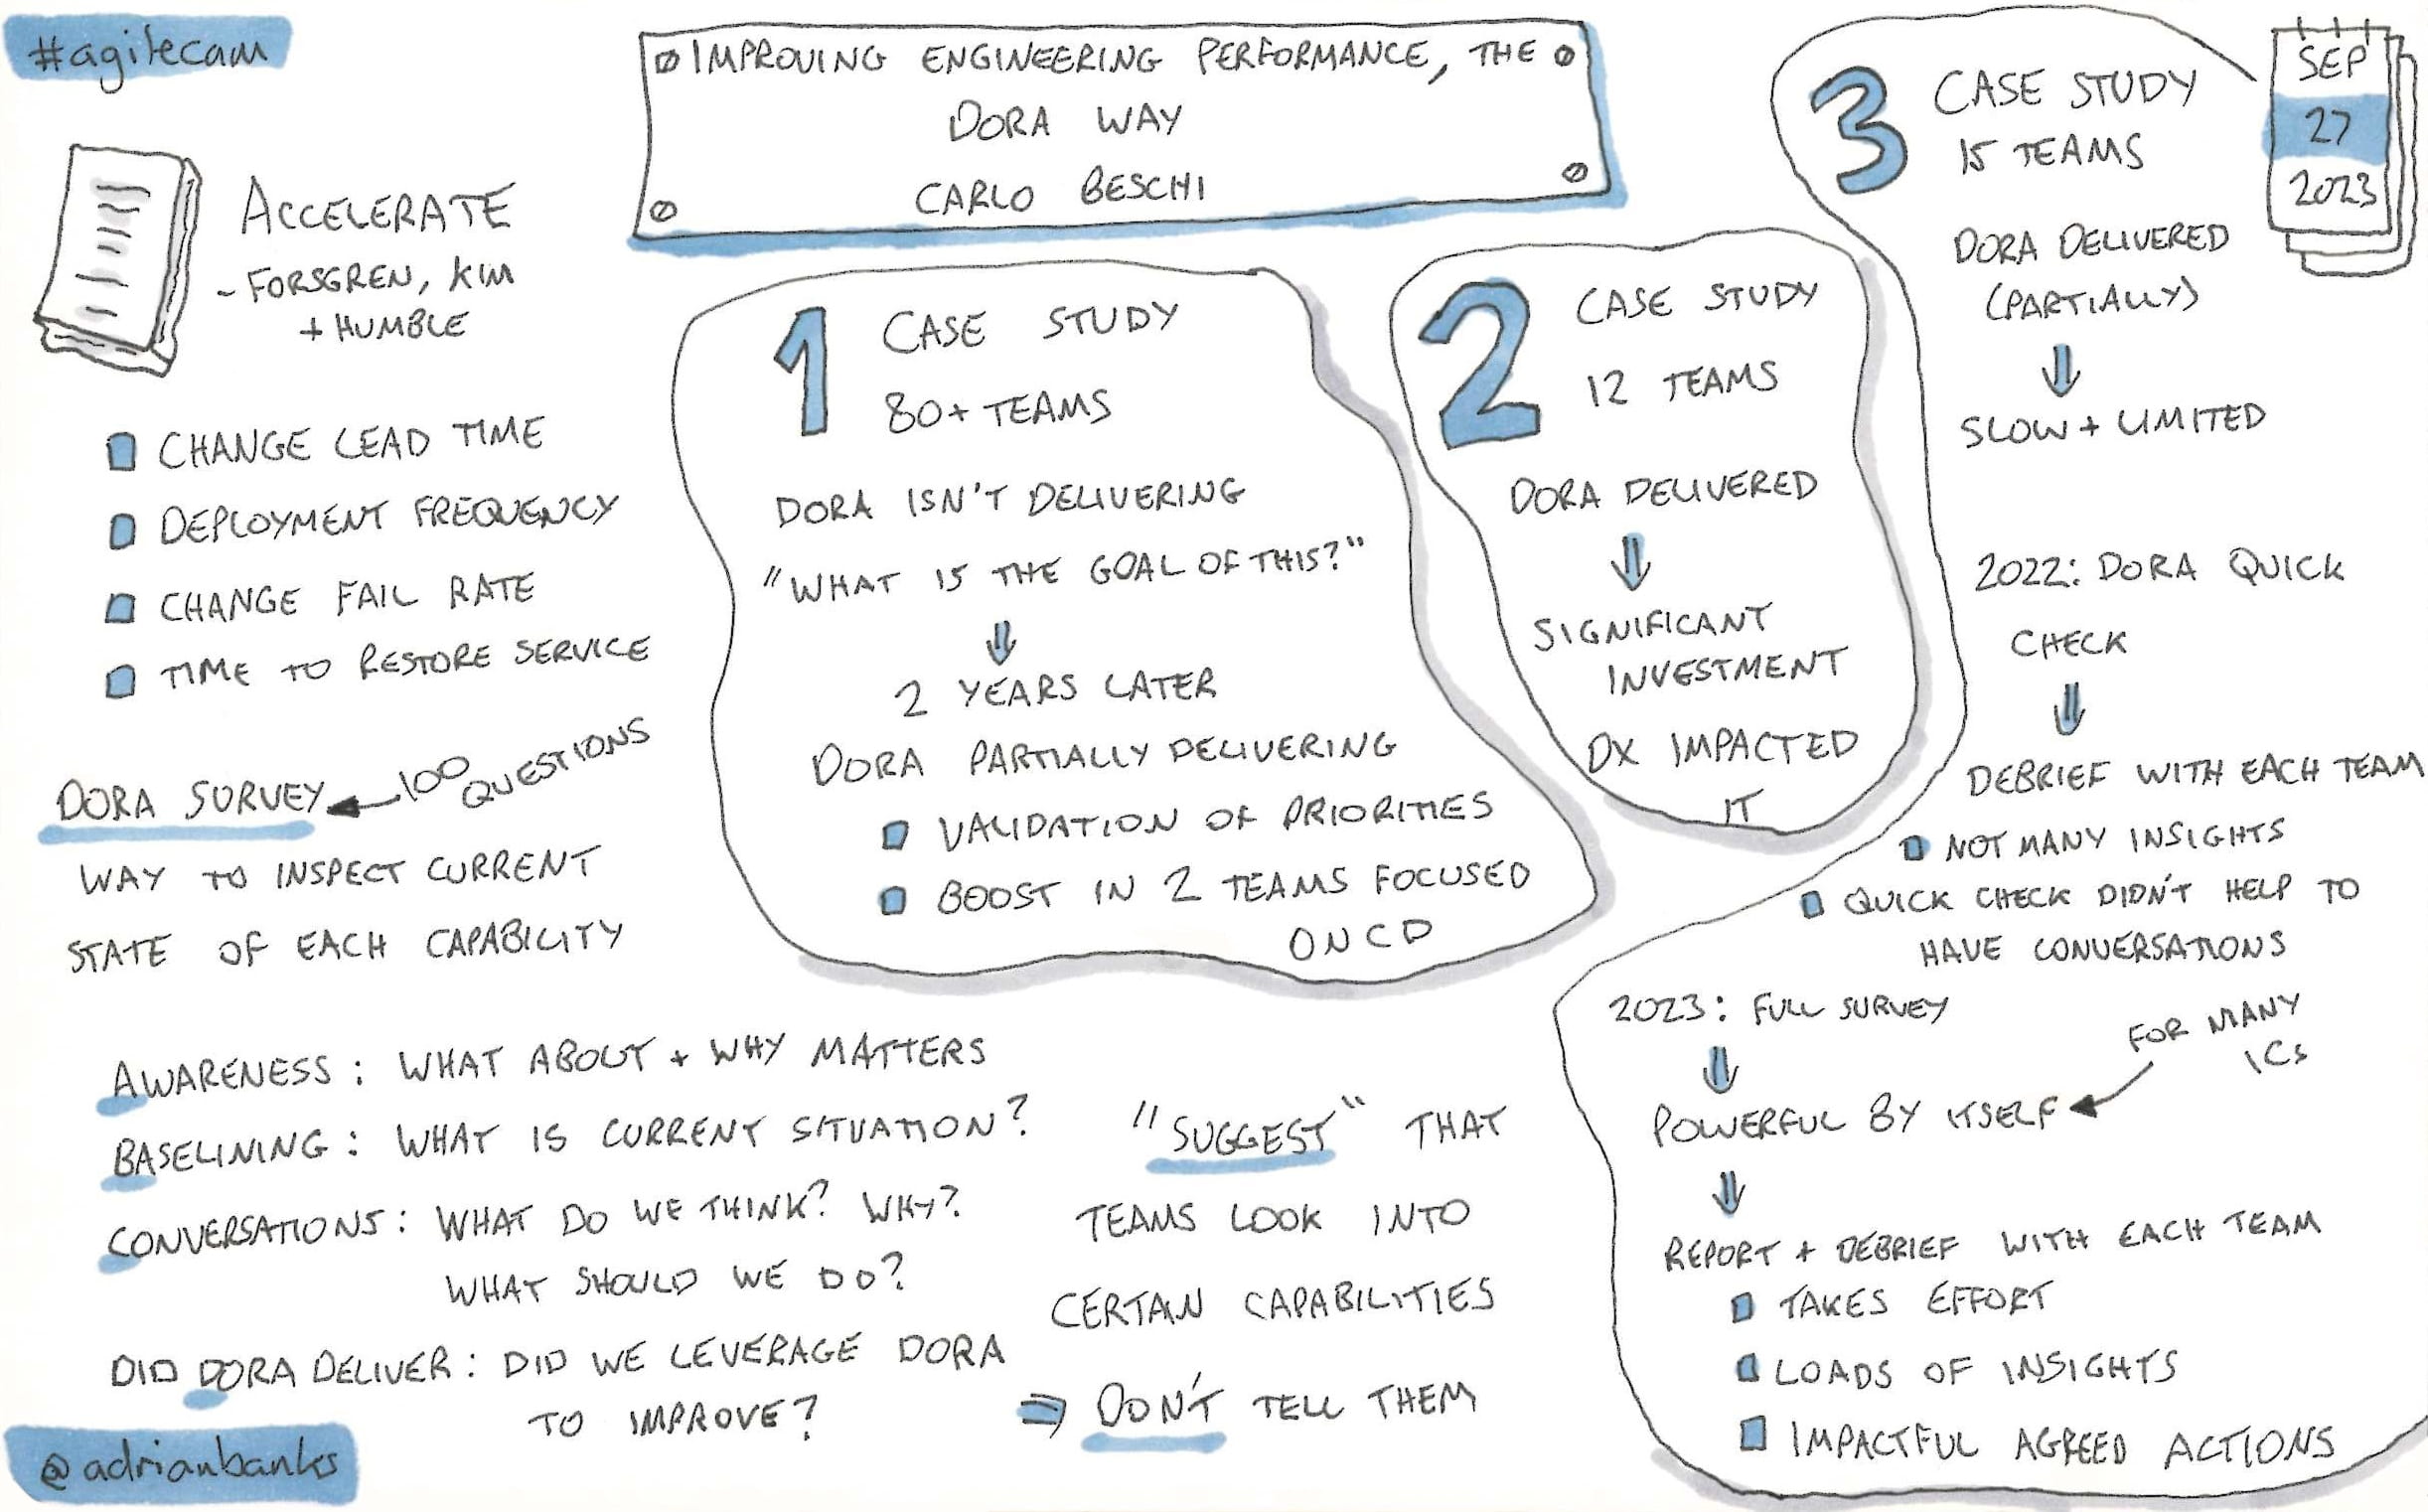 #agilecam
IMPROVING ENGINEERING PERFORMANCE, THE
DORA WAY
CARLO BESCHI
SEP
27
2023
ACCELERATE
- FORSGREN, KIM
+ HUMBLE
CHANGE LEAD TIME
DEPLOYMENT FREQUENCY
CHANGE FAIL RATE
TIME TO RESTORE SERVICE
DORA SURVEY
100 QUESTIONS
WAY TO INSPECT CURRENT
STATE OF EACH CAPABILITY
AWARENESS: WHAT ABOUT + WHY MATTERS
BASELINING: WHAT IS CURRENT SITUATION?
CONVERSATIONS: WHAT DO WE THINK? WHY?
WHAT SHOULD WE DO?
DID DORA DELIVER: DID WE LEVERAGE DORA
TO IMPROVE?
@adrianbanks
1
CASE STUDY
80+ TEAMS
DORA ISN'T DELIVERING
"WHAT IS THE GOAL OF THIS?"
2 YEARS LATER
DORA PARTIALLY DELIVERING
VALIDATION OF PRIORITIES
BOOST IN 2 TEAMS FOCUSED
ON CD
"SUGGEST" THAT
TEAMS LOOK INTO
CERTAIN CAPABILITIES
DON'T TELL THEM
2
CASE STUDY
12 TEAMS
DORA DELIVERED
SIGNIFICANT
INVESTMENT
DX IMPACTED
IT
3
CASE STUDY
15 TEAMS
DORA DELIVERED
(PARTIALLY)
SLOW + LIMITED
2022: DORA QUICK
CHECK
DEBRIEF WITH EACH TEAM
NOT MANY INSIGHTS
QUICK CHECK DIDN'T HELP TO
HAVE CONVERSATIONS
2023: FULL SURVEY
FOR MANY
ICs
POWERFUL BY ITSELF
REPORT + DEBRIEF WITH EACH TEAM
TAKES EFFORT
LOADS OF INSIGHTS
IMPACTFUL AGREED ACTIONS